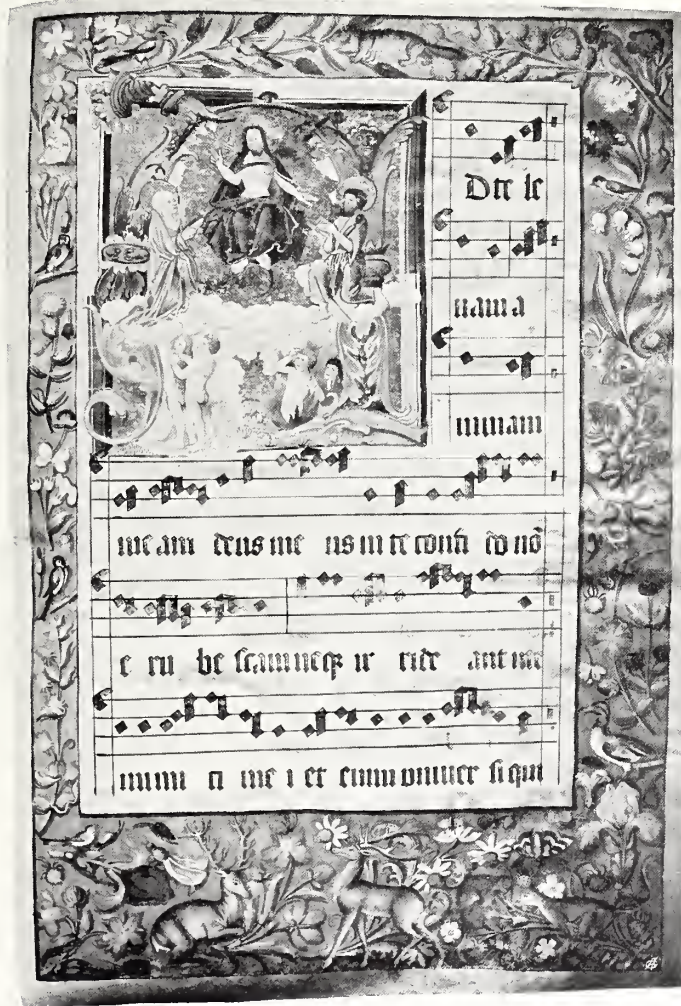 D te le
uam a
nimam
me am deus me us in te confi do nō
e ru be scam neqꝫ ir ride ant me
inimi ci me i et enim univer si qui